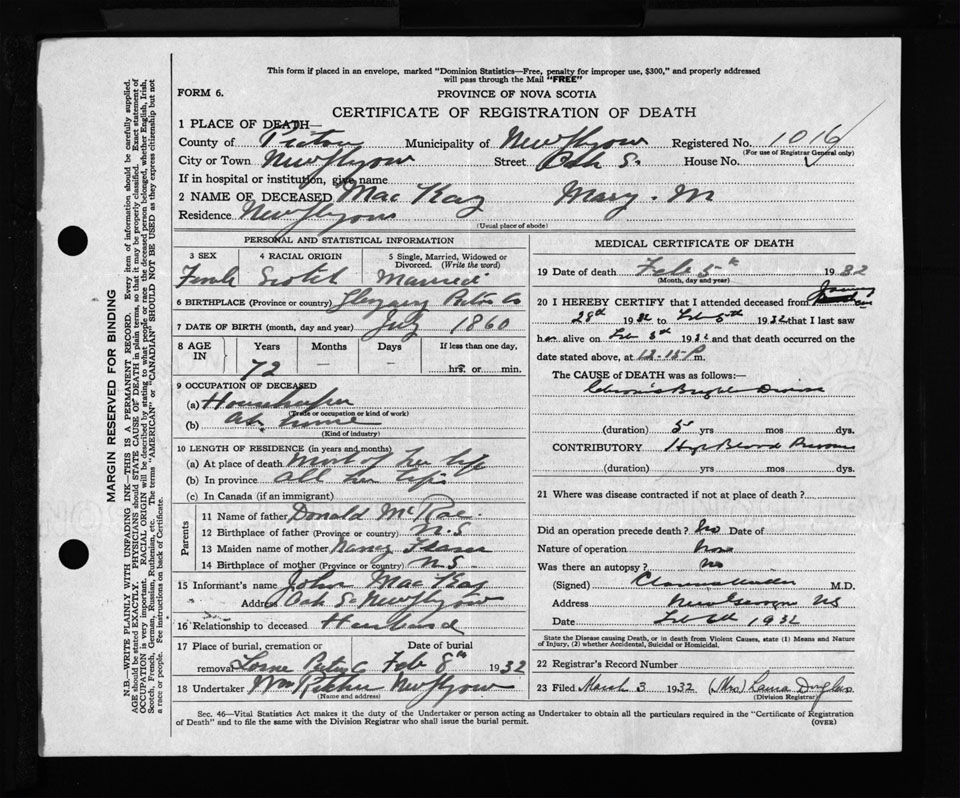 This form if placed in an envelope, marked "Dominion Statistics—Free, penalty for improper use, $300," and properly addressed
will pass through the Mail "FREE"
FORM 6.
PROVINCE OF NOVA SCOTIA
CERTIFICATE OF REGISTRATION OF DEATH
1 PLACE OF DEATH—
County of Pictou Municipality of New Glasgow Registered No. 1016
(For use of Registrar General only)
City or Town New Glasgow Street Oak S. House No.
If in hospital or institution, give name
2 NAME OF DECEASED Mac Kay Mary. M
Residence New Glasgow
(Usual place of abode)
PERSONAL AND STATISTICAL INFORMATION
3 SEX 4 RACIAL ORIGIN 5 Single, Married, Widowed or Divorced. (Write the word)
Female Scotch Married
6 BIRTHPLACE (Province or country) Pictou Co
7 DATE OF BIRTH (month, day and year) July 1860
8 AGE IN Years Months Days If less than one day,
72 — hrs. or min.
9 OCCUPATION OF DECEASED
(a) Housekeeper
(Trade or occupation or kind of work)
(b) At home
(Kind of industry)
10 LENGTH OF RESIDENCE (in years and months)
(a) At place of death Most of her life
(b) In province All her life
(c) In Canada (if an immigrant)
Parents
11 Name of father Donald McRae
12 Birthplace of father (Province or country) N.S.
13 Maiden name of mother Nancy Fraser
14 Birthplace of mother (Province or country) N.S.
15 Informant's name John Mac Kay
Address Oak S. New Glasgow
16 Relationship to deceased Husband
17 Place of burial, cremation or Date of burial
removal Lorne Pictou Co Feb 8th 1932
18 Undertaker New Glasgow
(Name and address)
MEDICAL CERTIFICATE OF DEATH
19 Date of death Feb 5th 1932
(Month, day and year)
20 I HEREBY CERTIFY that I attended deceased from Jany
28th 1932 to Feb 5th 1932 that I last saw
her alive on Feb 5th 1932 and that death occurred on the
date stated above, at 12-15 P.m.
The CAUSE OF DEATH was as follows:—
Chronic Bright Disease
(duration) 5 yrs mos dys.
CONTRIBUTORY High Blood Pressure
(duration) yrs mos dys.
21 Where was disease contracted if not at place of death?
Did an operation precede death? No Date of
Nature of operation None
Was there an autopsy? No
(Signed) M.D.
Address New Glasgow NS
Date Feb 6th 1932
State the Disease causing Death, or in death from Violent Causes, state (1) Means and Nature
of Injury, (2) whether Accidental, Suicidal or Homicidal.
22 Registrar's Record Number
23 Filed March 3 1932 (Mrs) Laura Douglas
(Division Registrar)
Sec. 46—Vital Statistics Act makes it the duty of the Undertaker or person acting as Undertaker to obtain all the particulars required in the "Certificate of Registration
of Death" and to file the same with the Division Registrar who shall issue the burial permit.
(OVER)
MARGIN RESERVED FOR BINDING
N.B.—WRITE PLAINLY WITH UNFADING INK—THIS IS A PERMANENT RECORD. Every item of information should be carefully supplied.
AGE should be stated EXACTLY. PHYSICIANS should STATE CAUSE OF DEATH in plain terms, so that it may be properly classified. Exact statement of
OCCUPATION is very important. RACIAL ORIGIN will be described by stating to what people or race the deceased person belonged, whether English, Irish,
Scotch, French, German, Russian, Ruthenian, etc. The terms "AMERICAN" or "CANADIAN" SHOULD NOT BE USED as they express citizenship but not
a race or people. See instructions on back of Certificate.